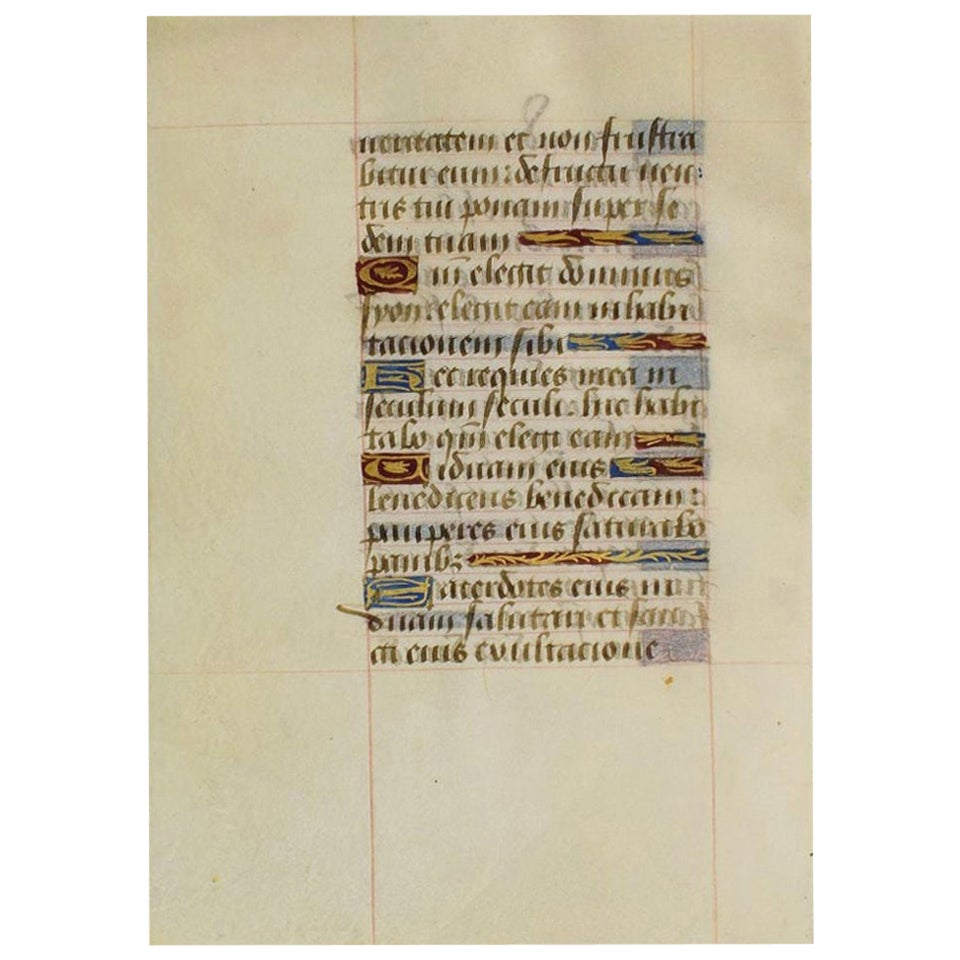 ueritatem et non frustra
bitur eum: de fructu uen:
tris tui ponam super se
dem tuam
Qm̄ elegit dominus
syon elegit eam in habi
tacionem sibi
Hec requies mea in
seculum seculi: hic habi
tabo qm̄ elegi eam
Viduam eius
benedicens benedicam:
pauperes eius saturabo
panibꝫ
Sacerdotes eius in
duam salutari et sanc
ti eius exultacione